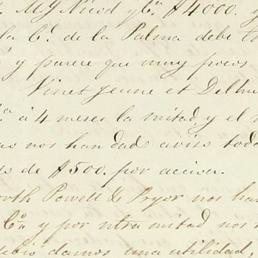 M J Nicod y Ca. $4000. y
la Ca. de la Palma debe
y parece que muy pocos
Vinet Jeune et
á 4 meses la mitad y el
nos han dado aviso
de $500. por accion.
Powell & Pryor nos
Ca. y por ntra mitad nos
damos una utilidad,